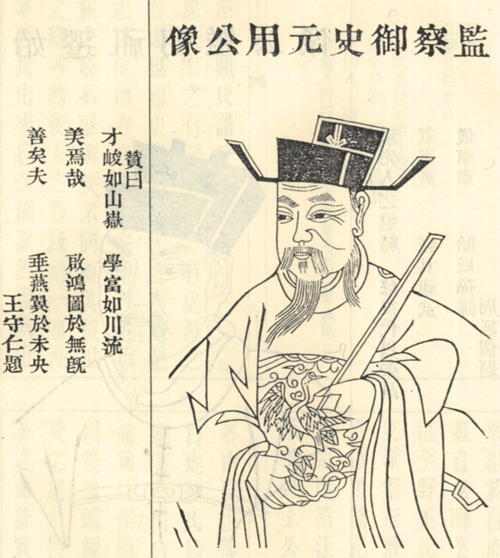 監察御史元用公像
贊曰
才峻如山嶽 學富如川流
美焉哉 啟鴻圖於無旣
善矣夫 垂燕翼於未央
王守仁題